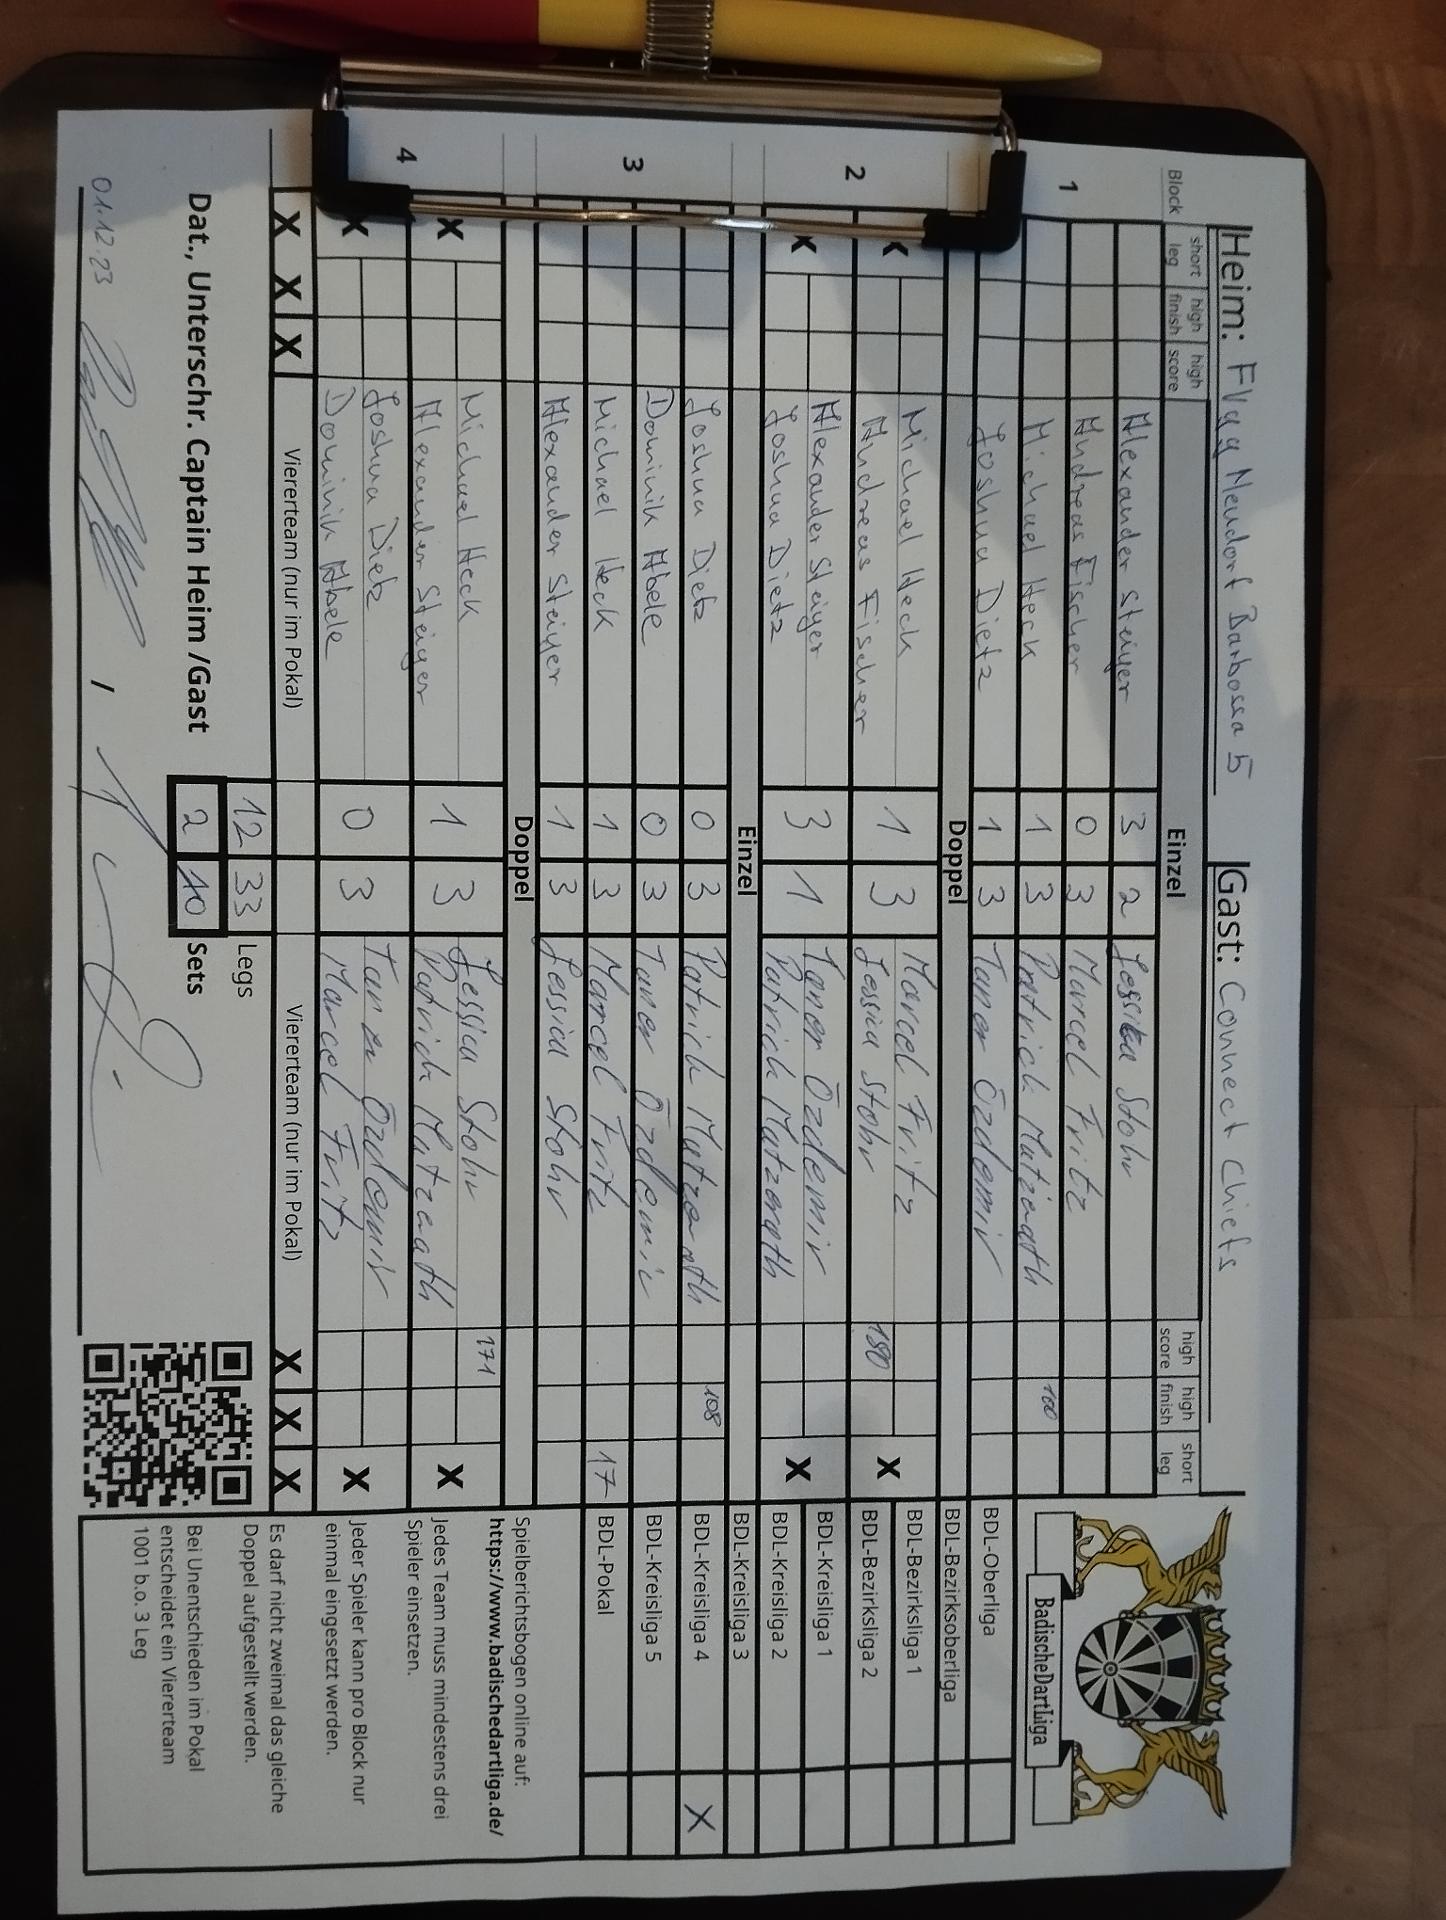 Heim: FVgg Neudorf Barbossa 5 Gast: Connect Chiefs
Block short leg high finish high score Einzel high score high finish short leg
1
Alexander Steiger 3 2 Jessica Stohr
Andreas Fischer 0 3 Marcel Fritz
Michael Heck 1 3 Patrick Matzerath 100
Joshua Dietz 1 3 Taner Özdemir
Doppel
2
Michael Heck Marcel Fritz
X Andreas Fischer 1 3 Jessica Stohr 180 X
Alexander Steiger Taner Özdemir
X Joshua Dietz 3 1 Patrick Matzerath X
Einzel
3
Joshua Dietz 0 3 Patrick Matzerath 108
Dominik Abele 0 3 Taner Özdemir
Michael Heck 1 3 Marcel Fritz 17
Alexander Steiger 1 3 Jessica Stohr
Doppel
4
Michael Heck Jessica Stohr 171
X Alexander Steiger 1 3 Patrick Matzerath X
Joshua Dietz Taner Özdemir
X Dominik Abele 0 3 Marcel Fritz X
X X X Viererteam (nur im Pokal) Viererteam (nur im Pokal) X X X
12 33 Legs
Dat., Unterschr. Captain Heim /Gast 2 10 Sets
01.12.23
BadischeDartLiga
BDL-Oberliga
BDL-Bezirksoberliga
BDL-Bezirksliga 1
BDL-Bezirksliga 2
BDL-Kreisliga 1
BDL-Kreisliga 2
BDL-Kreisliga 3
BDL-Kreisliga 4 X
BDL-Kreisliga 5
BDL-Pokal
Spielberichtsbogen online auf:
https://www.badischedartliga.de/
Jedes Team muss mindestens drei
Spieler einsetzen.
Jeder Spieler kann pro Block nur
einmal eingesetzt werden.
Es darf nicht zweimal das gleiche
Doppel aufgestellt werden.
Bei Unentschieden im Pokal
entscheidet ein Viererteam
1001 b.o. 3 Leg